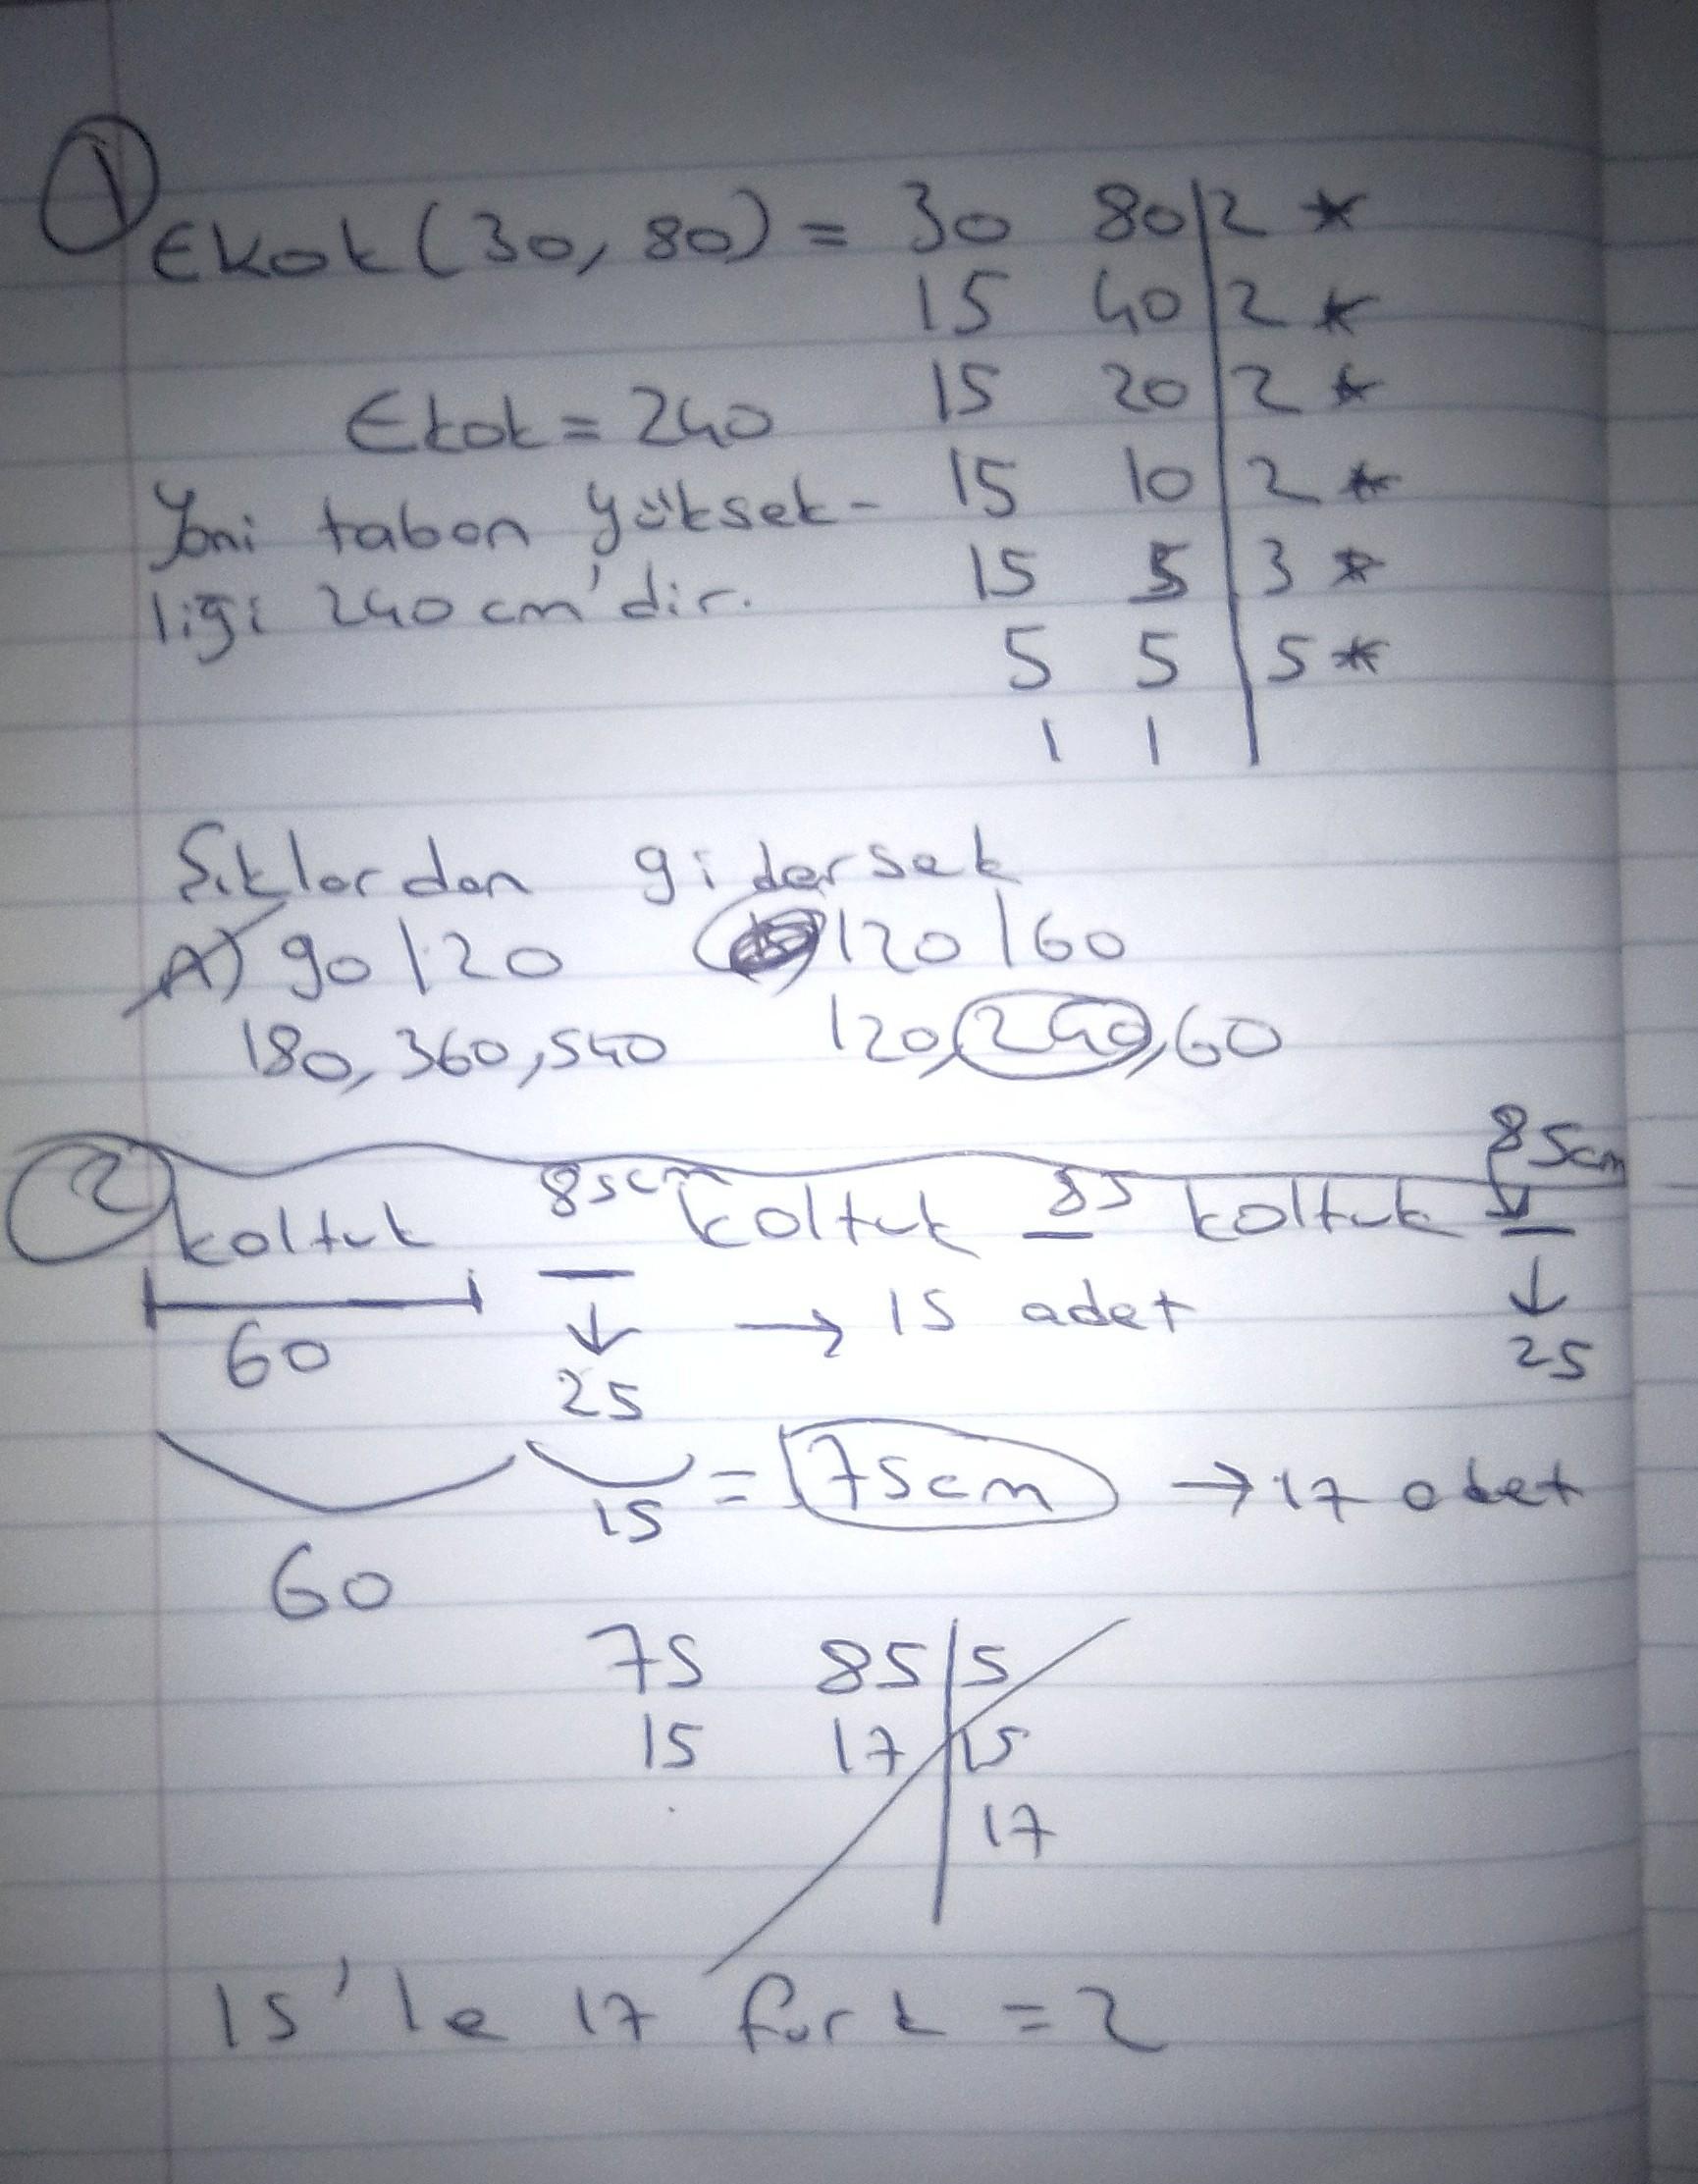 1
Ekok (30, 80) = 30 80 | 2 *
15 40 | 2 *
15 20 | 2 *
Ekok = 240
15 10 | 2 *
Yani taban yüksek-
15 5 | 3 *
liği 240 cm'dir.
5 5 | 5 *
1 1 |
Şıklardan gidersek
A) 90 120
120 160
180, 360, 540
120, 240, 60
2
koltuk 85cm koltuk 85 koltuk 85cm
60 25 → 15 adet 25
60 15 = 75cm → 17 adet
75 85 | 5
15 17 | 15
17
15'le 17 fark = 2